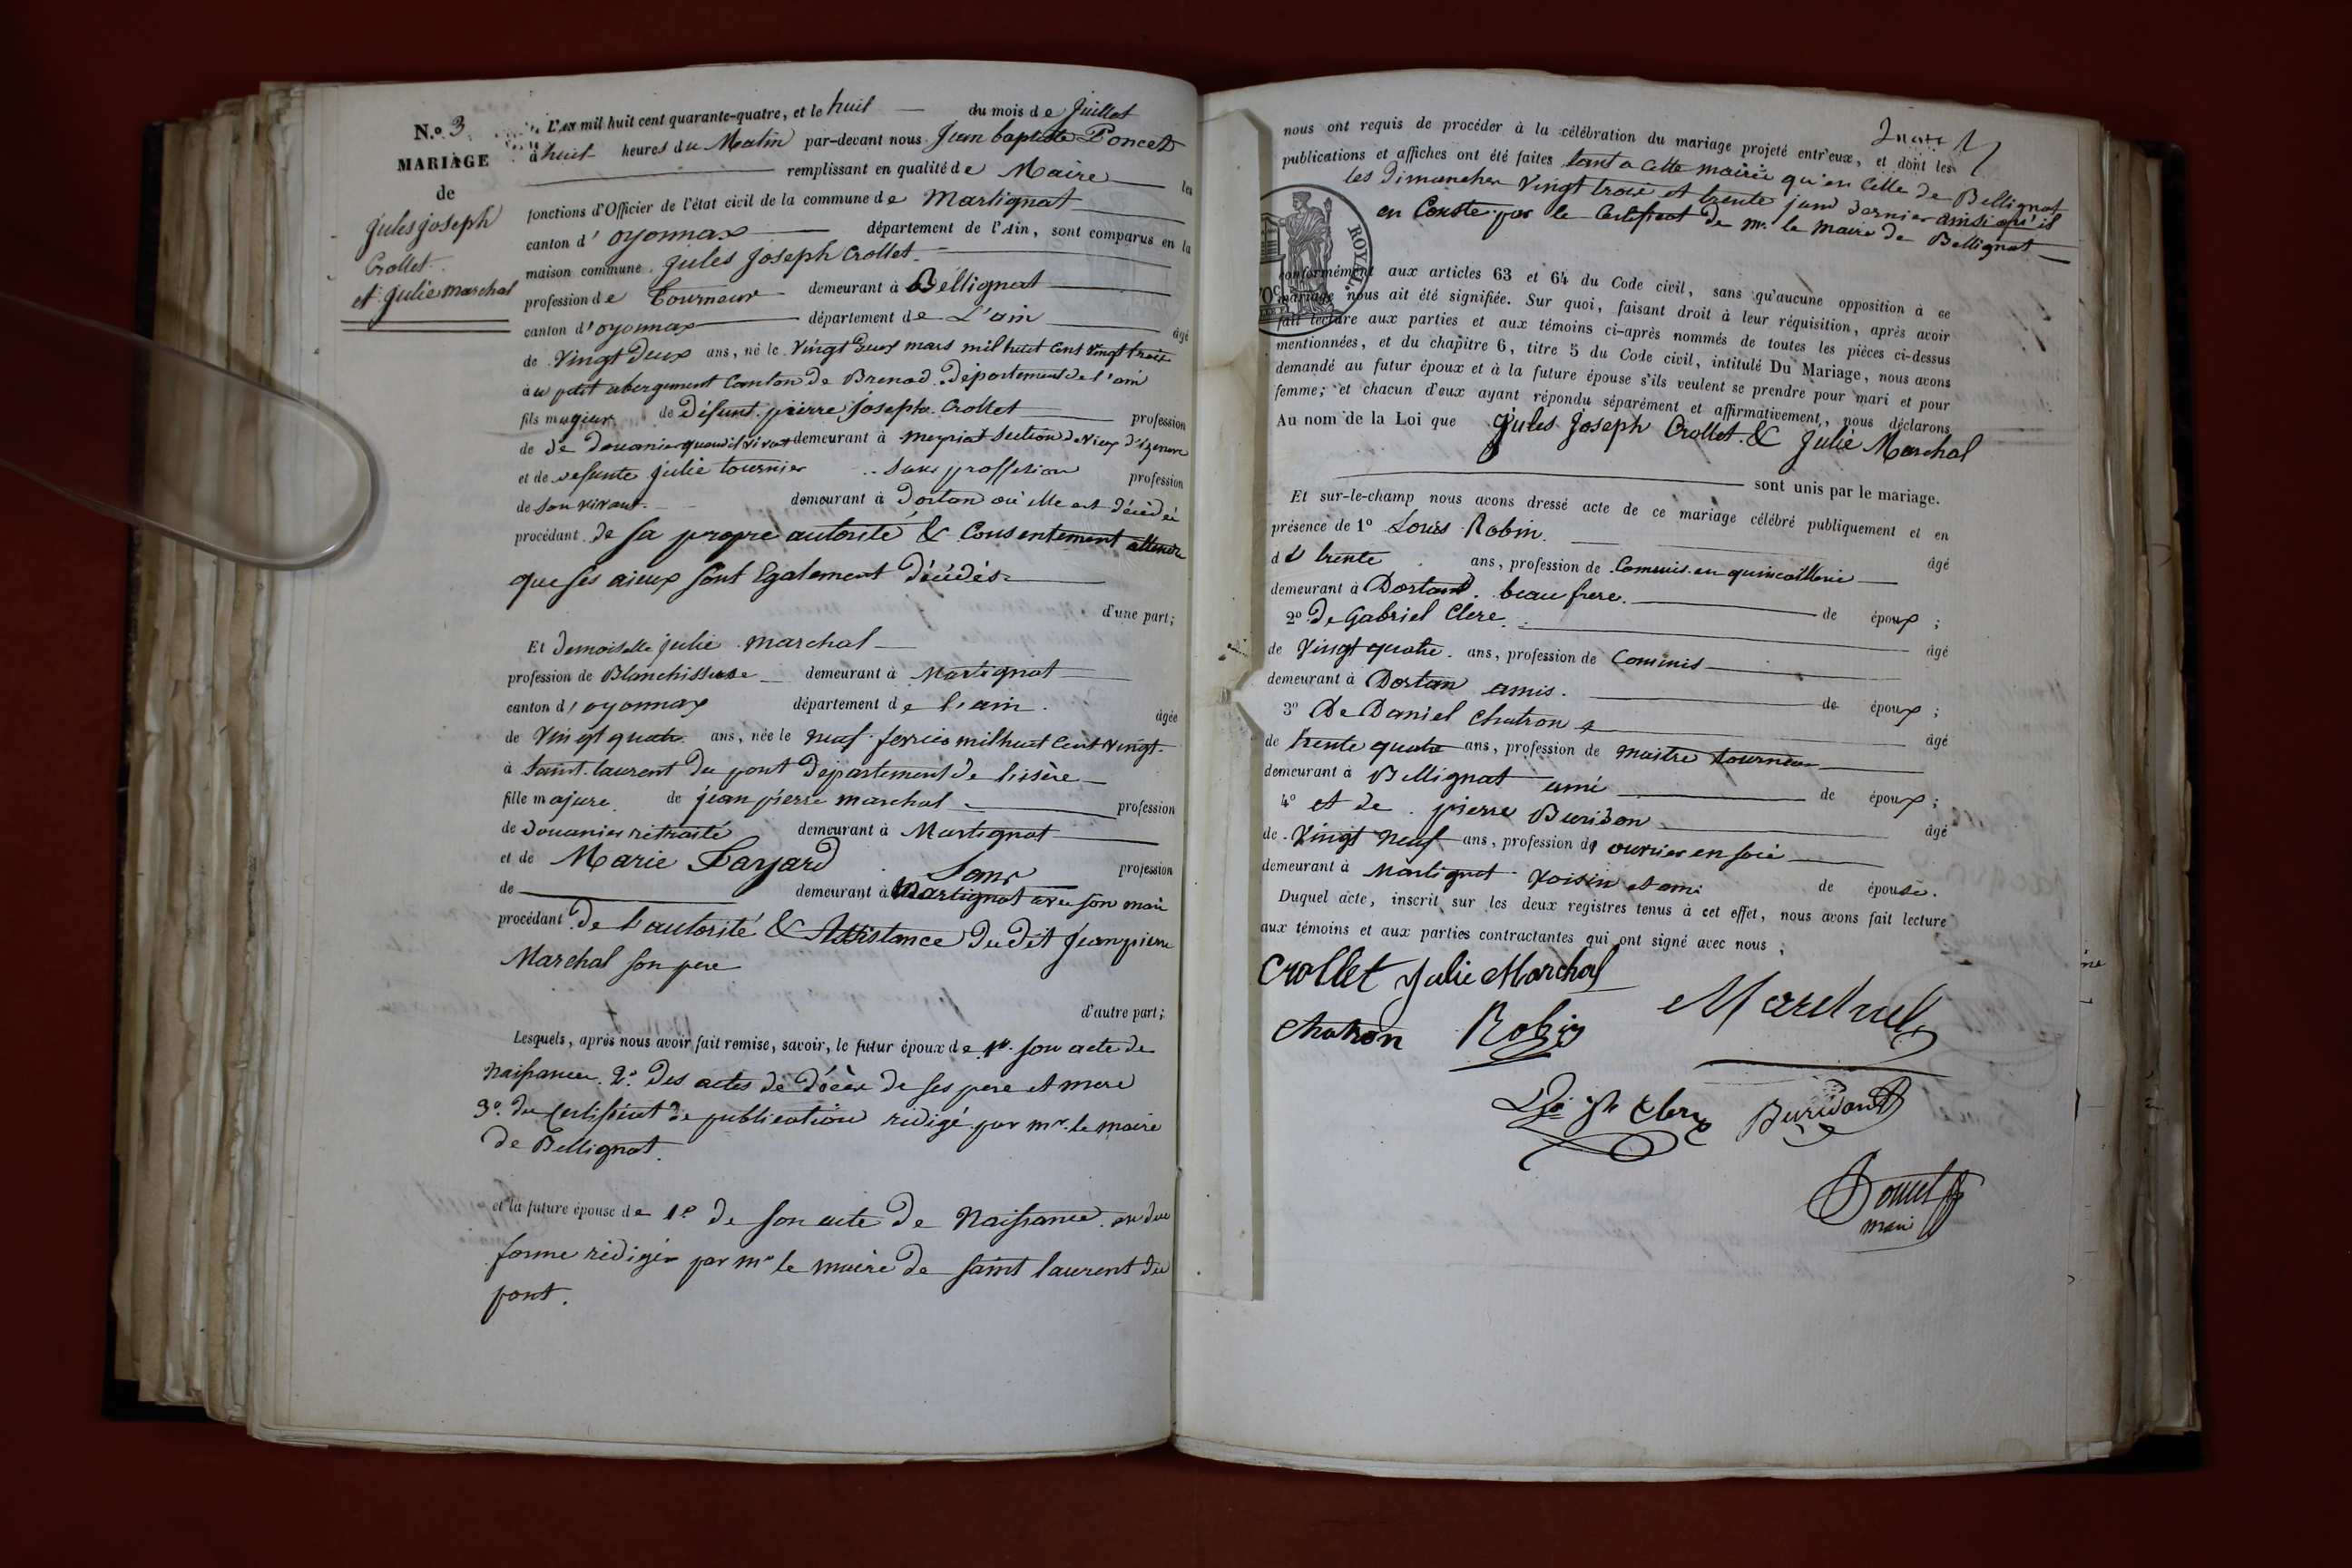 N.o 3
MARIAGE
de
Jules Joseph
Crollet
et Julie marchal
L'an mil huit cent quarante-quatre, et le huit du mois de Juillet
à huit heures du Matin par-devant nous Jean baptiste Poncet
remplissant en qualité de Maire les
fonctions d'Officier de l'état civil de la commune de Martignat
canton d' oyonnax département de l'Ain, sont comparus en la
maison commune Jules Joseph Crollet
profession de Tourneur demeurant à Bellignat
canton d'oyonnax département de L'ain âgé
de Vingt Deux ans, né le Vingt Deux mars mil huit Cent Vingt trois
à u petit abergement Canton de Brenod. Département de l'ain
fils majeur de Défunt pierre joseph Crollet profession
de de Douanier quand il vivait demeurant à meyriat Section de Vieux d'Izenave
et de defunte julie tournier sans proffesion profession
de Son vivant. demeurant à Dortan où elle est décédée
procédant de sa propre autorité & Consentement attendu
que ses aieux sont Egalement décédés
d'une part;
Et Demoiselle julie marchal
profession de Blanchisseuse demeurant à Martignat
canton d'oyonnax département de l'ain. âgée
de Vingt quatre ans, née le neuf fevrier mil huit Cent Vingt
à Saint laurent Du pont Département de l'isère
fille majure. de jean pierre marchal profession
de Douanier retraité demeurant à Martignat
et de Marie Sans profession
de demeurant à Martignat avec son mari
procédant de l'autorité & Assistance Dudit Jean pierre
Marchal son pere
d'autre part;
Lesquels, après nous avoir fait remise, savoir, le futur époux de 1º. son acte de
Naissance. 2º. Des actes de Décès de ses pere et mere
3º. du Certificat de publication rédigé par mr. le maire
de Bellignat.
et la future épouse de 1º de son acte de Naissance en due
forme rédigée par mr le maire de saint laurent du
pont.
nous ont requis de procéder à la célébration du mariage projeté entr'eux, et dont les
publications et affiches ont été faites tant a Cette mairie qu'en Celle de Bellignat
les Dimanches Vingt trois et trente juin Dernier ainsi qu'il
en Conste par le Certificat de mr. le maire de Bellignat
ROYAL.
conformément aux articles 63 et 64 du Code civil, sans qu'aucune opposition à ce
mariage nous ait été signifiée. Sur quoi, faisant droit à leur réquisition, après avoir
fait lecture aux parties et aux témoins ci-après nommés de toutes les pièces ci-dessus
mentionnées, et du chapitre 6, titre 5 du Code civil, intitulé Du Mariage, nous avons
demandé au futur époux et à la future épouse s'ils veulent se prendre pour mari et pour
femme; et chacun d'eux ayant répondu séparément et affirmativement, nous déclarons
Au nom de la Loi que Jules Joseph Crollet & Julie Marchal
sont unis par le mariage.
Et sur-le-champ nous avons dressé acte de ce mariage célébré publiquement et en
présence de 1º Louis Robin. âgé
de trente ans, profession de Commis en quincaillerie
demeurant à Dortand. beau frere. de époux;
2º De Gabriel Clere. âgé
de Vingt quatre ans, profession de Commis
demeurant à Dortan amis. de époux;
3º De Daniel Chatron âgé
de trente quatre ans, profession de maitre tourneur
demeurant à Bellignat ami de époux;
4º et de pierre Buridon âgé
de Vingt neuf ans, profession d' ouvrier en soie
demeurant à Martignat Voisin et ami de épouse.
Duquel acte, inscrit sur les deux registres tenus à cet effet, nous avons fait lecture
aux témoins et aux parties contractantes qui ont signé avec nous;
Crollet Julie Marchal
Marchal
Chatron Robin
Clerc Buridant
Poncet
maire